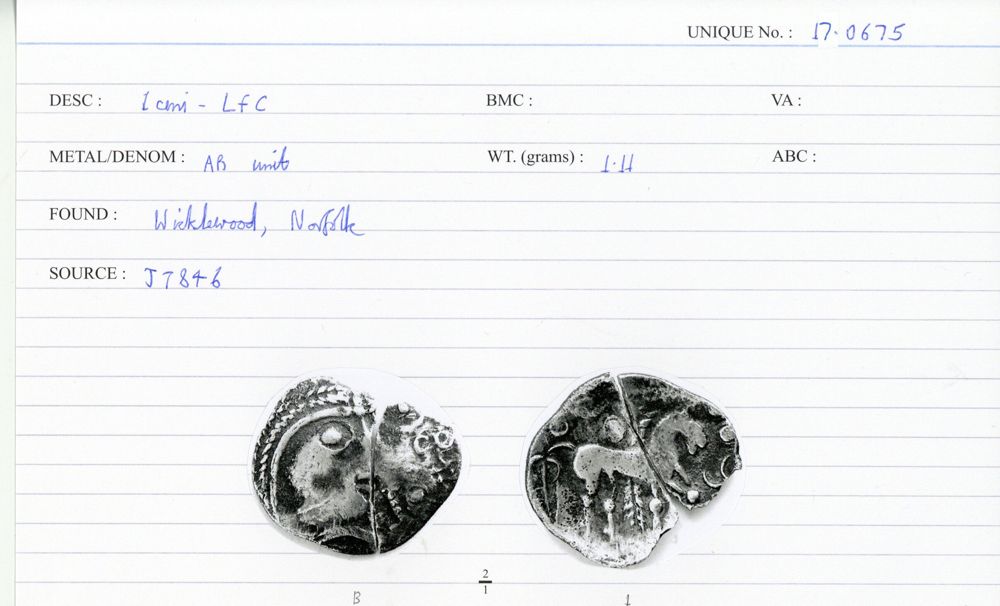 UNIQUE No. : 17·0675
DESC : Iceni - LFC BMC : VA :
METAL/DENOM : AR unit WT. (grams) : 1·11 ABC :
FOUND : Wicklewood, Norfolk
SOURCE : J7846
2
1
B 1